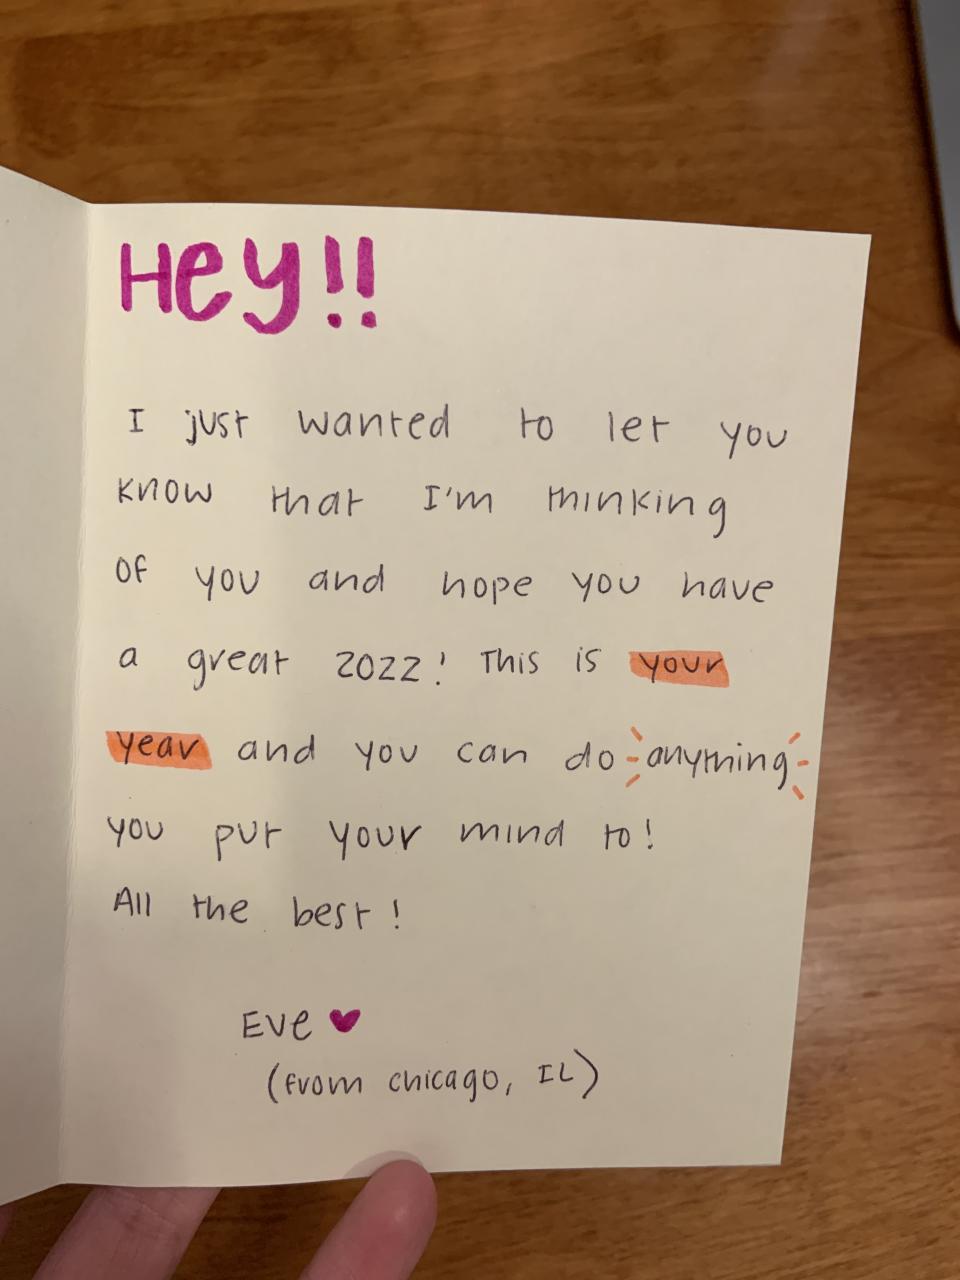 Hey!!
I just wanted to let you
know that I'm thinking
of you and hope you have
a great 2022! This is your
year and you can do anything
you put your mind to!
All the best!
Eve ♥
(from chicago, IL)